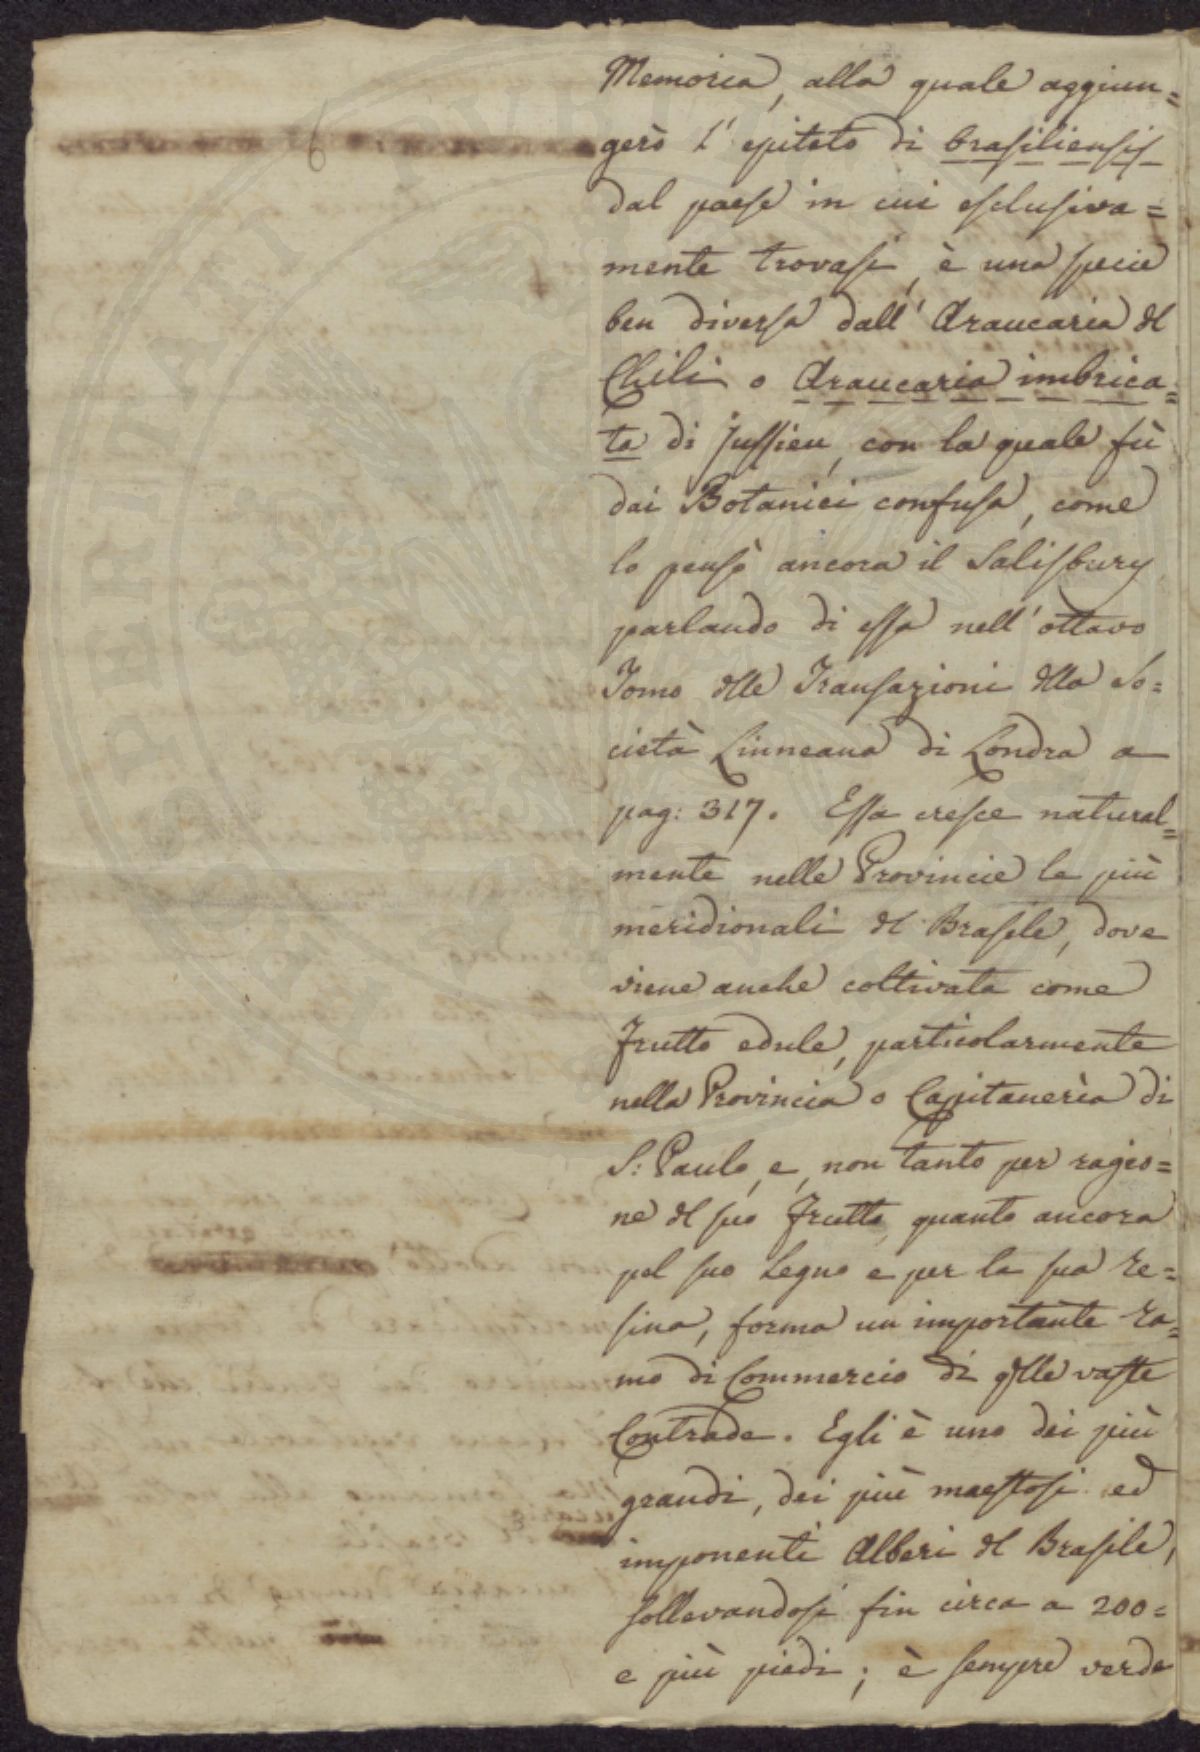 Memoria, alla quale aggiun=
gerò l'epiteto di brasiliensis
dal paese in cui esclusiva=
mente trovasi, è una specie
ben diversa dall'Araucaria del
Chili o Araucaria imbrica=
ta di Jussieu, con la quale fù
dai Botanici confusa, come
lo pensò ancora il Salisbury
parlando di essa nell'ottavo
Tomo delle Transazioni della So=
cietà Linneana di Londra a
pag: 317. Essa cresce natural=
mente nelle Provincie le più
meridionali del Brasile, dove
viene anche coltivata come
Frutto edule, particolarmente
nella Provincia o Capitanerìa di
S: Paulo, e, non tanto per ragio=
ne del suo Frutto, quanto ancora
pel suo Legno e per la sua re=
sina, forma un importante ra=
mo di Commercio di quelle vaste
Contrade. Egli è uno dei più
grandi, dei più maestosi ed
imponenti Alberi del Brasile,
sollevandosi fin circa a 200=
e più piedi; è sempre verde